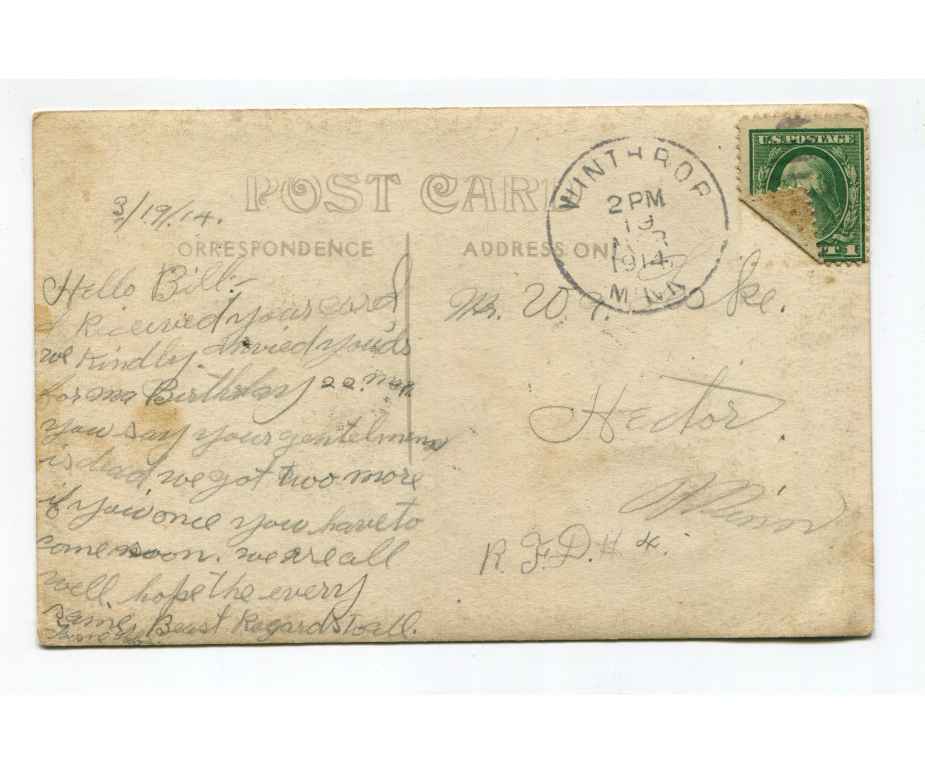 POST CAR
3/19/14.
ORRESPONDENCE
ADDRESS ON
WINTHROP
2 PM
19
1914
MINN
U.S. POSTAGE
1
Hello Bill:-
I Received your card
we Kindly invied you
for Birthday 22.
you say your gentelmens
is dead we got two more
if you once you have to
come soon. we are all
well. hope the every
same. Beast Regards to all.
Mr. W.
Hector.
Minn
R.F.D. # 4.